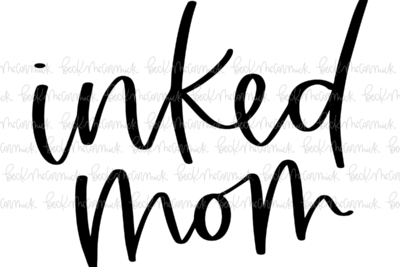 inked
mom